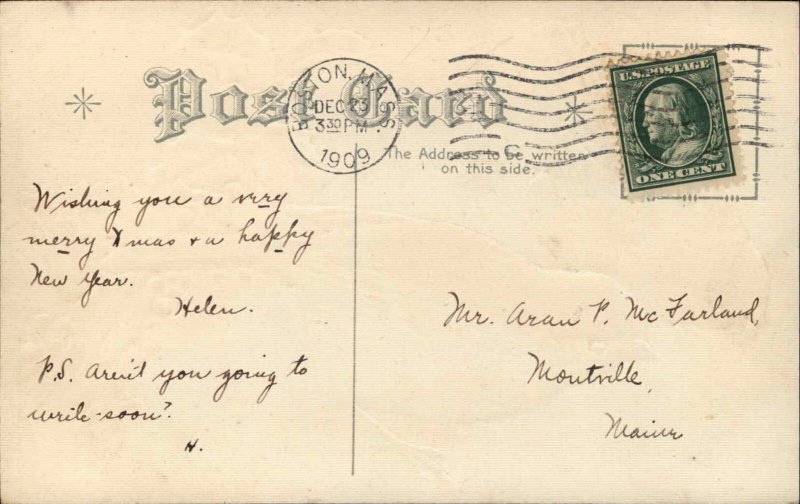 Post Card
BOSTON, MASS.
DEC 23
3 30 PM
1909
U.S. POSTAGE
ONE CENT
C
The Address to be written
on this side.
Wishing you a very
merry Xmas + a happy
New Year.
Helen.
P.S. Aren't you going to
write soon?
H.
Mr. Aran P. McFarland,
Montville,
Maine